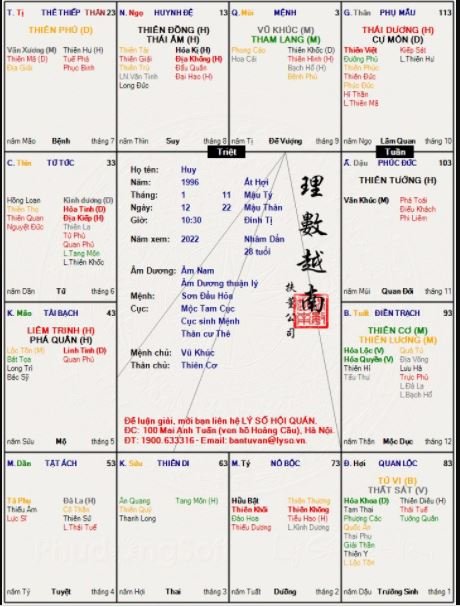 T. Tị THÊ THIẾP THÂN 23
THIÊN PHỦ (D)
Văn Xương (M) Thiên Hư (H)
Thiên Mã (D) Tuế Phá
Địa Giải Phục Binh
năm Mão Bệnh tháng 7
N. Ngọ HUYNH ĐỆ 13
THIÊN ĐỒNG (H)
THÁI ÂM (H)
Thiên Tài Hóa Kị (H)
Thiên Giải Địa Không (H)
Thiên Trù Đẩu Quân
LN.Văn Tinh Đại Hao (H)
Long Đức
năm Thìn Suy tháng 8
Q. Mùi MỆNH 3
VŨ KHÚC (M)
THAM LANG (M)
Phong Cáo Thiên Khốc (D)
Hoa Cái Thiên Hình (H)
Bạch Hổ (H)
Bệnh Phù
năm Tị Đế Vượng tháng 9
G. Thân PHỤ MẪU 113
THÁI DƯƠNG (H)
CỰ MÔN (D)
Thiên Việt Kiếp Sát
Đường Phù L.Thiên Hư
Thiên Phúc
Thiên Đức
Phúc Đức
Hỉ Thần
L.Thiên Mã
năm Ngọ Lâm Quan tháng 10
Triệt
Tuần
C. Thìn TỬ TỨC 33
Hồng Loan Kình dương (D)
Thiên Thọ Hỏa Tinh (D)
Thiên Quan Địa Kiếp (H)
Nguyệt Đức Thiên La
Tử Phù
Quan Phủ
L.Tang Môn
L.Thiên Khốc
năm Dần Tử tháng 6
Họ tên: Huy
Năm: 1996 Ất Hợi
Tháng: 1 11 Mậu Tý
Ngày: 12 22 Mậu Thân
Giờ: 10:30 Đinh Tị
Năm xem: 2022 Nhâm Dần
28 tuổi
Âm Dương: Âm Nam
Âm Dương thuận lý
Mệnh: Sơn Đầu Hỏa
Cục: Mộc Tam Cục
Cục sinh Mệnh
Thân cư Thê
Mệnh chủ: Vũ Khúc
Thân chủ: Thiên Cơ
理數越南
扶董公司
Để luận giải, mời bạn liên hệ LÝ SỐ HỘI QUÁN.
ĐC: 100 Mai Anh Tuấn (ven hồ Hoàng Cầu), Hà Nội.
ĐT: 1900.633316 - Email: bantuvan@lyso.vn.
Ấ. Dậu PHÚC ĐỨC 103
THIÊN TƯỚNG (H)
Văn Khúc (M) Phá Toái
Điếu Khách
Phi Liêm
năm Mùi Quan Đới tháng 11
K. Mão TÀI BẠCH 43
LIÊM TRINH (H)
PHÁ QUÂN (H)
Lộc Tồn (M) Linh Tinh (D)
Bát Tọa Quan Phù
Long Trì
Bác Sỹ
năm Sửu Mộ tháng 5
B. Tuất ĐIỀN TRẠCH 93
THIÊN CƠ (M)
THIÊN LƯƠNG (M)
Hóa Lộc (V) Quả Tú
Hóa Quyền (V) Địa Võng
Thiên Hỉ Lưu Hà
Tấu Thư Trực Phù
L.Đà La
L.Bạch Hổ
năm Thân Mộc Dục tháng 12
M. Dần TẬT ÁCH 53
Tả Phụ Đà La (H)
Thiếu Âm Cô Thần
Lực Sĩ Thiên Sứ
L.Thái Tuế
năm Tý Tuyệt tháng 4
K. Sửu THIÊN DI 63
Ân Quang Tang Môn (H)
Thiên Quý
Thanh Long
năm Hợi Thai tháng 3
M. Tý NÔ BỘC 73
Hữu Bật Thiên Thương
Thiên Khôi Thiên Không
Đào Hoa Tiểu Hao (H)
Thiếu Dương L.Kình Dương
năm Tuất Dưỡng tháng 2
Đ. Hợi QUAN LỘC 83
TỬ VI (B)
THẤT SÁT (V)
Hóa Khoa (D) Thiên Diêu (H)
Tam Thai Thái Tuế
Phượng Các Tướng Quân
Quốc Ấn
Thai Phụ
Giải Thần
Thiên Y
L.Lộc Tồn
năm Dậu Trường Sinh tháng 1